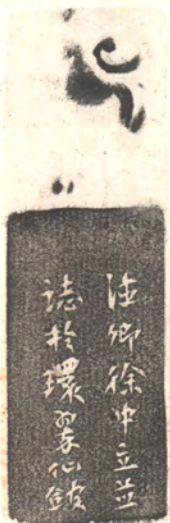 達卿徐中立並
誌於環翠仙館